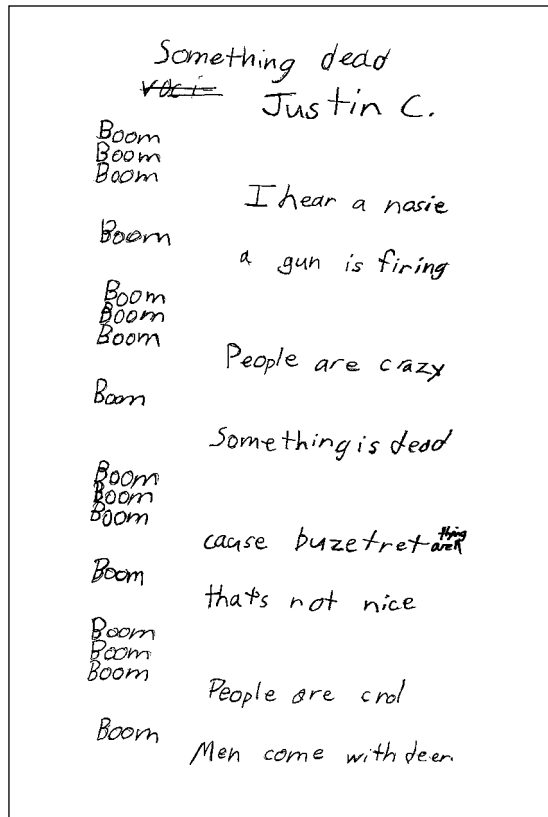 Something dead
Justin C.
Boom
Boom
Boom
I hear a nosie
Boom
a gun is firing
Boom
Boom
Boom
People are crazy
Boom
Something is dead
Boom
Boom
Boom
cause
Boom
that's not nice
Boom
Boom
Boom
People are
Boom
Men come with deer